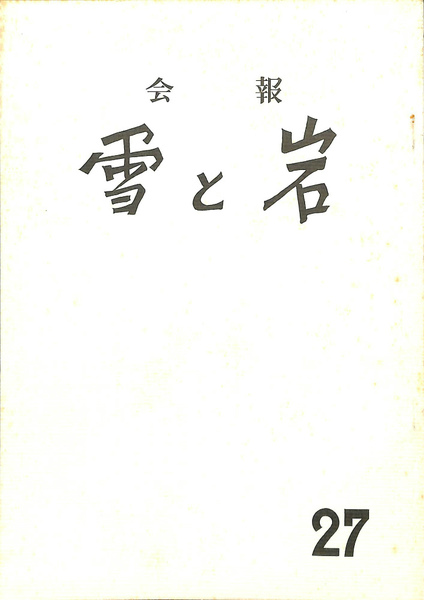 会報
雪と岩
27